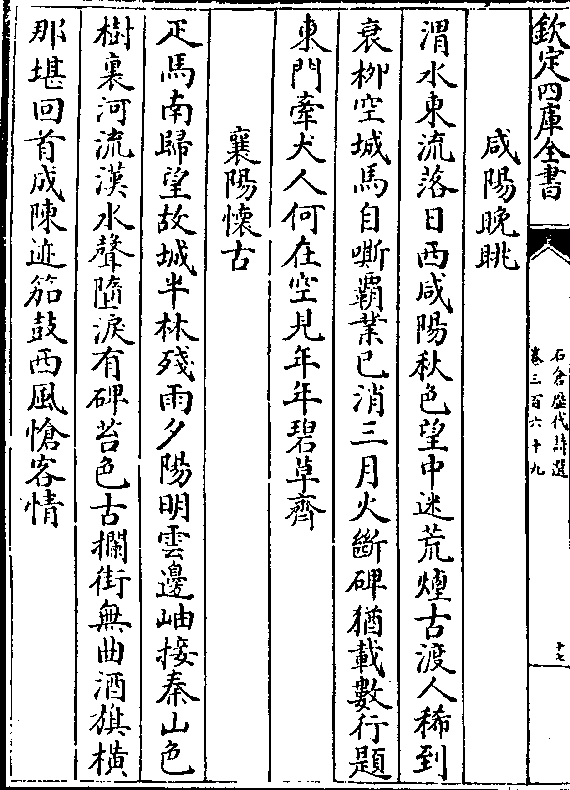 欽定四庫全書
石倉歷代詩選
卷三百六十九
十七
咸陽晚眺
渭水東流落日西咸陽秋色望中迷荒煙古渡人稀到
衰桺空城馬自嘶霸業已消三月火斷碑猶載數行題
東門牽犬人何在空見年年碧草齊
襄陽懷古
疋馬南歸望故城半林殘雨夕陽明雲邊岫接秦山色
樹裏河流漢水聲隨淚有碑苔色古攔街無曲酒旗橫
那堪回首成陳迹笳鼓西風愴客情